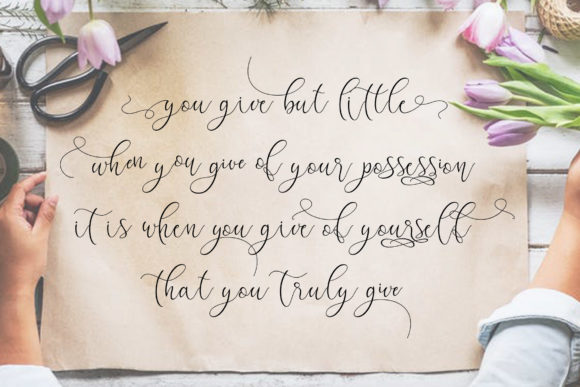 you give but little
when you give of your possession
it is when you give of yourself
that you truly give